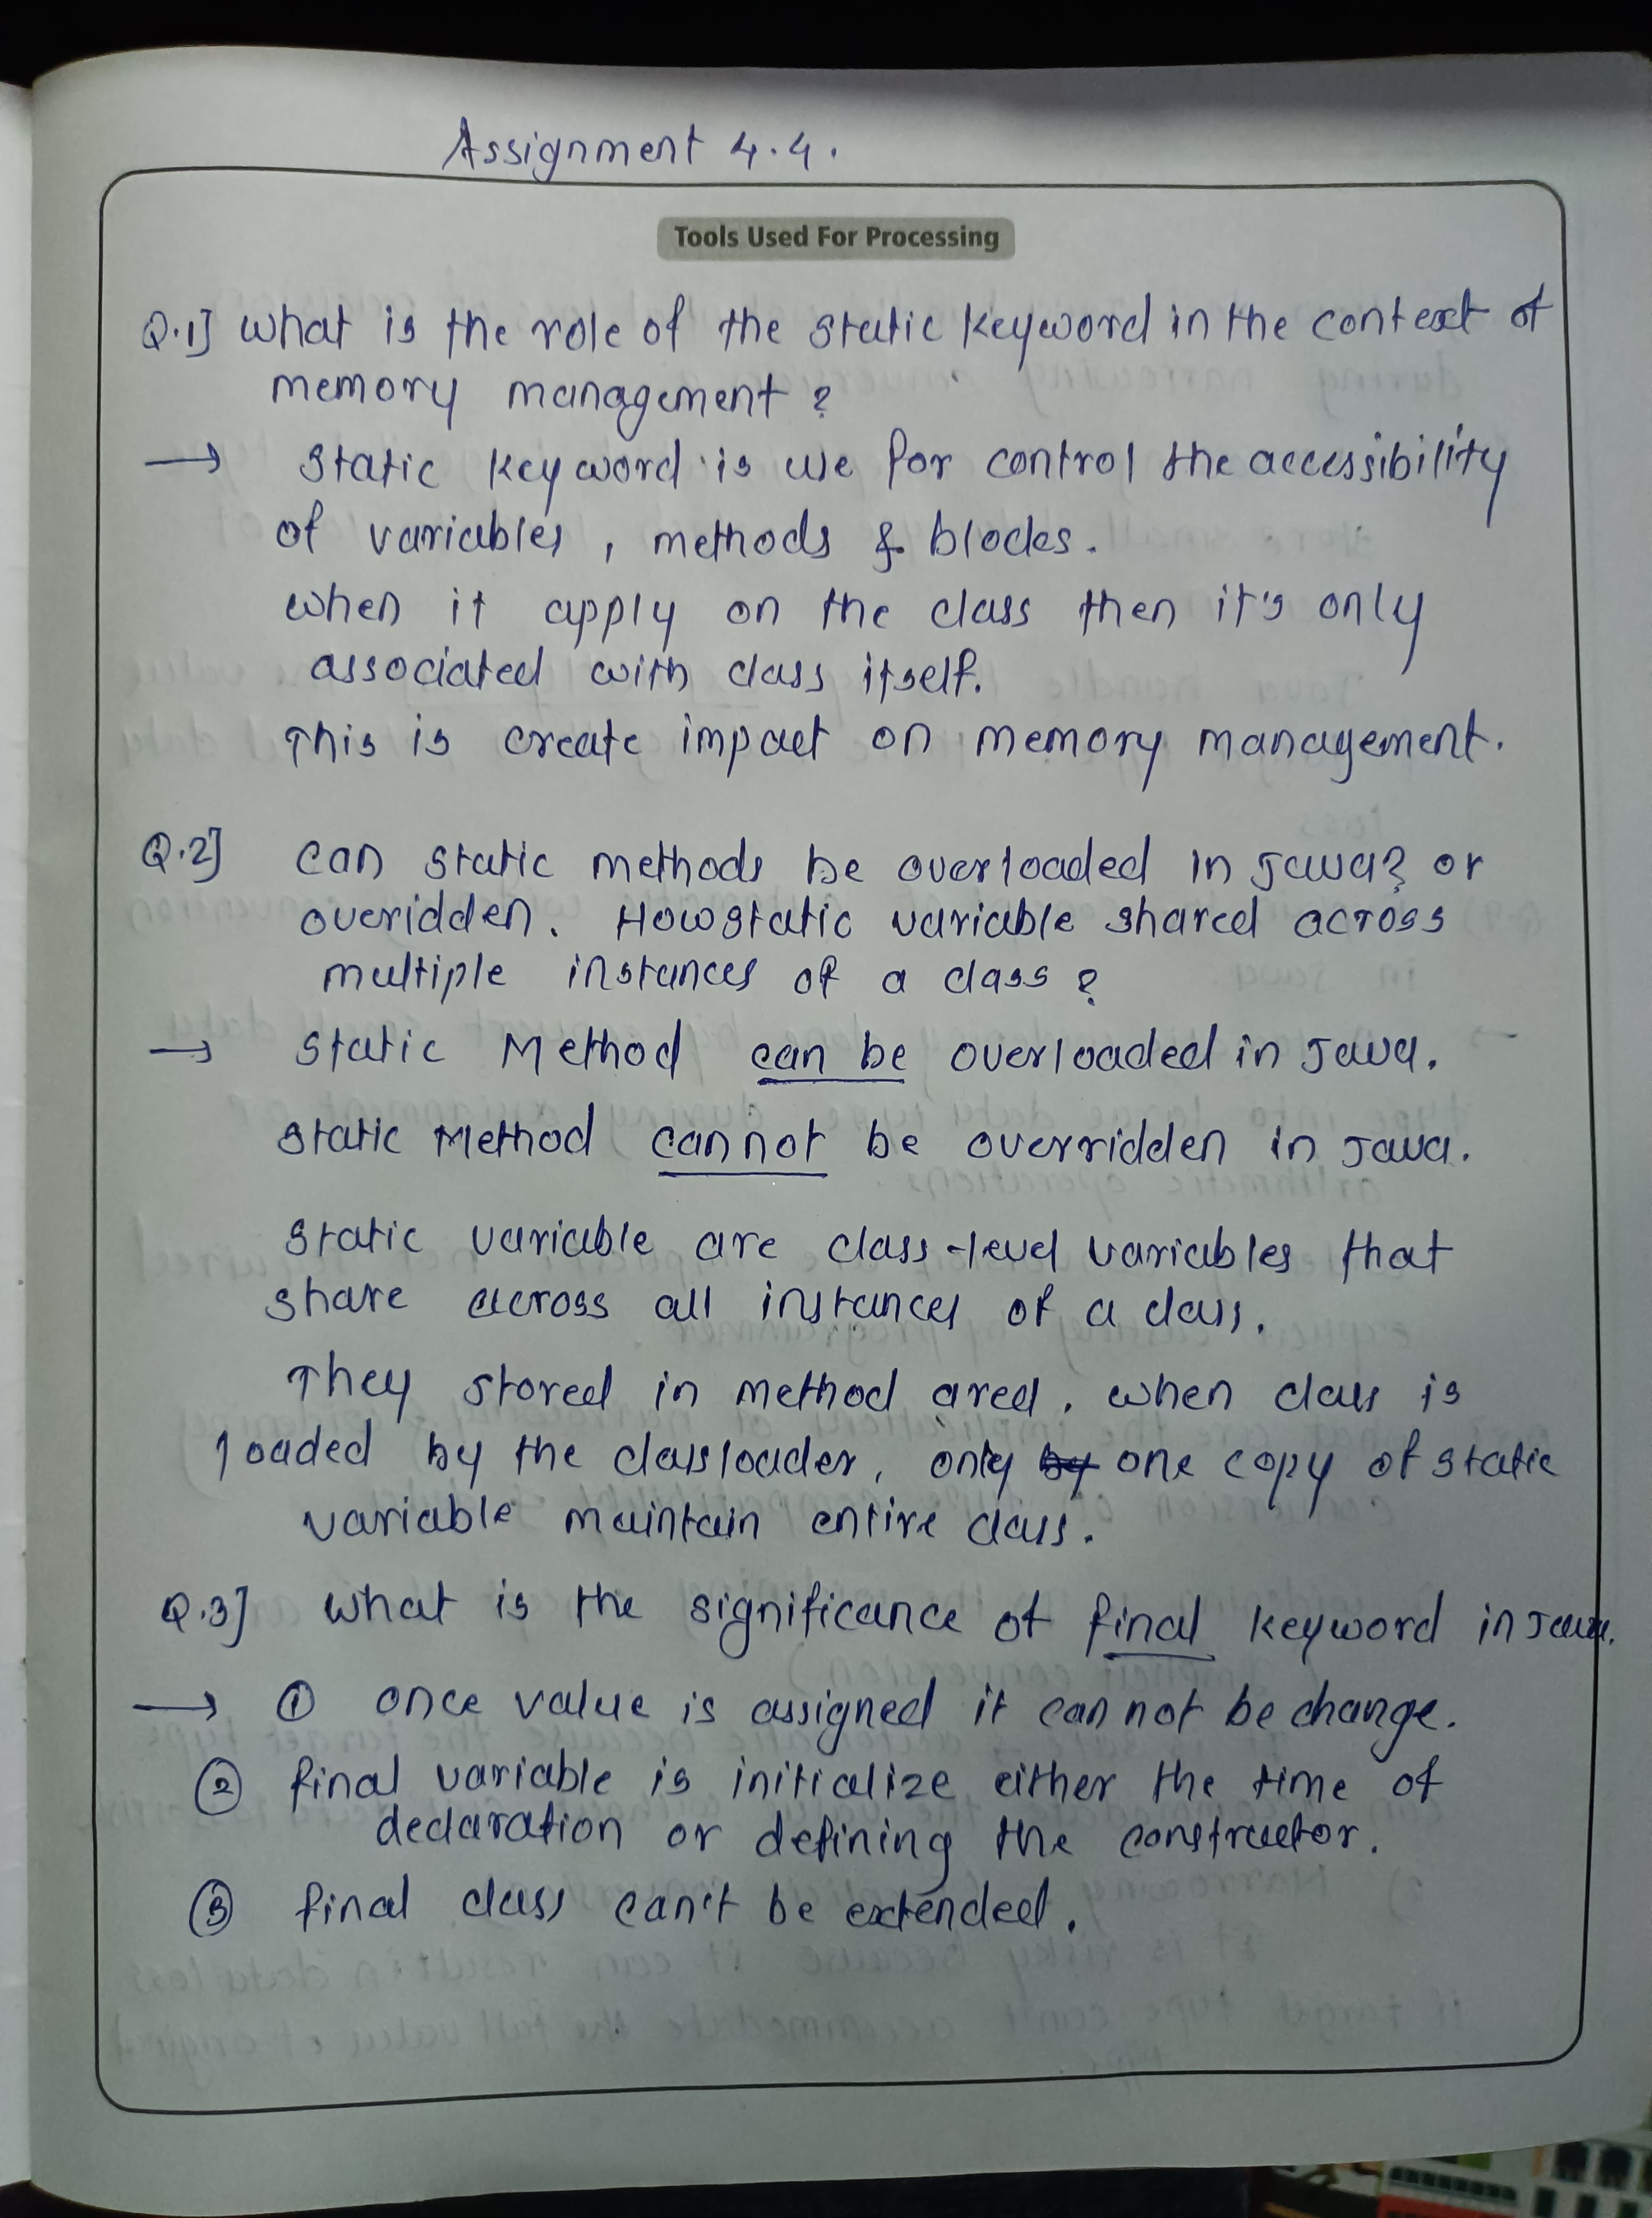 Assignment 4.4.
Tools Used For Processing
Q.1] What is the role of the static keyword in the context of
memory management ?
→ Static keyword is use for control the accessibility
of variables , methods & blocks.
When it apply on the class then it's only
associated with class itself.
This is create impact on memory management.
Q.2] Can static methods be overloaded in Java? or
overidden. How static variable shared across
multiple instances of a class ?
→ Static Method can be overloaded in Java.
Static Method cannot be overridden in Java.
Static variable are class-level variables that
share across all instances of a class.
They stored in method ared. when class is
loaded by the classloader, only by one copy of static
variable maintain entire class.
Q.3] What is the significance of final keyword in Java.
→ ① once value is assigned it can not be change.
② final variable is initialize either the time of
declaration or defining the constructor.
③ final class can't be extended.